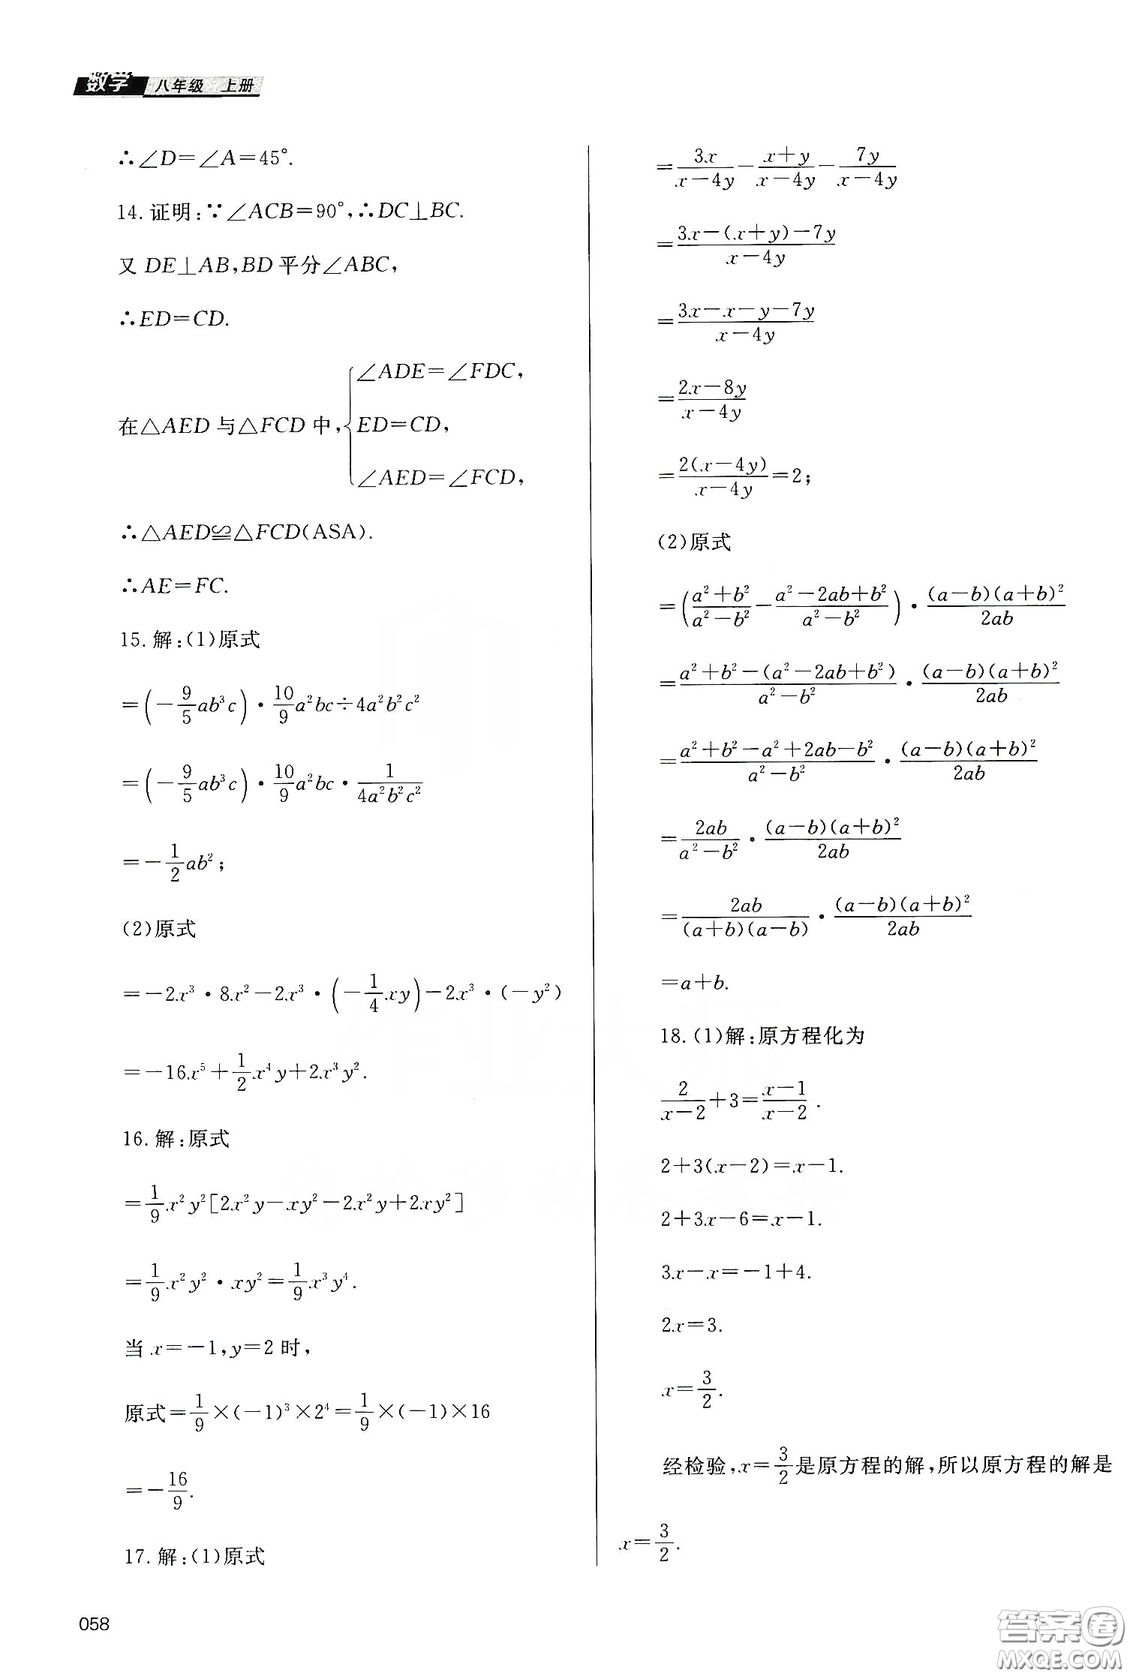 数学 八年级 上册
∴∠D=∠A=45°.
14.证明:∵∠ACB=90°,∴DC⊥BC.
又 DE⊥AB,BD平分∠ABC,
∴ED=CD.
∠ADE=∠FDC,
在△AED与△FCD中,{ED=CD,
∠AED=∠FCD,
∴△AED≌△FCD(ASA).
∴AE=FC.
15.解:(1)原式
=(-9/5 ab³c)·10/9 a²bc÷4a²b²c²
=(-9/5 ab³c)·10/9 a²bc·1/(4a²b²c²)
=-1/2 ab²;
(2)原式
=-2x³·8x²-2x³·(-1/4 xy)-2x³·(-y²)
=-16x⁵+1/2 x⁴y+2x³y².
16.解:原式
=1/9 x²y²[2x²y-xy²-2x²y+2xy²]
=1/9 x²y²·xy²=1/9 x³y⁴.
当x=-1,y=2时,
原式=1/9×(-1)³×2⁴=1/9×(-1)×16
=-16/9.
17.解:(1)原式
058
=3x/(x-4y)-(x+y)/(x-4y)-7y/(x-4y)
=(3x-(x+y)-7y)/(x-4y)
=(3x-x-y-7y)/(x-4y)
=(2x-8y)/(x-4y)
=2(x-4y)/(x-4y)=2;
(2)原式
=((a²+b²)/(a²-b²)-(a²-2ab+b²)/(a²-b²))·(a-b)(a+b)²/2ab
=(a²+b²-(a²-2ab+b²))/(a²-b²)·(a-b)(a+b)²/2ab
=(a²+b²-a²+2ab-b²)/(a²-b²)·(a-b)(a+b)²/2ab
=2ab/(a²-b²)·(a-b)(a+b)²/2ab
=2ab/((a+b)(a-b))·(a-b)(a+b)²/2ab
=a+b.
18.(1)解:原方程化为
2/(x-2)+3=(x-1)/(x-2).
2+3(x-2)=x-1.
2+3x-6=x-1.
3x-x=-1+4.
2x=3.
x=3/2.
经检验,x=3/2是原方程的解,所以原方程的解是
x=3/2.
答案圈
MXQE.COM